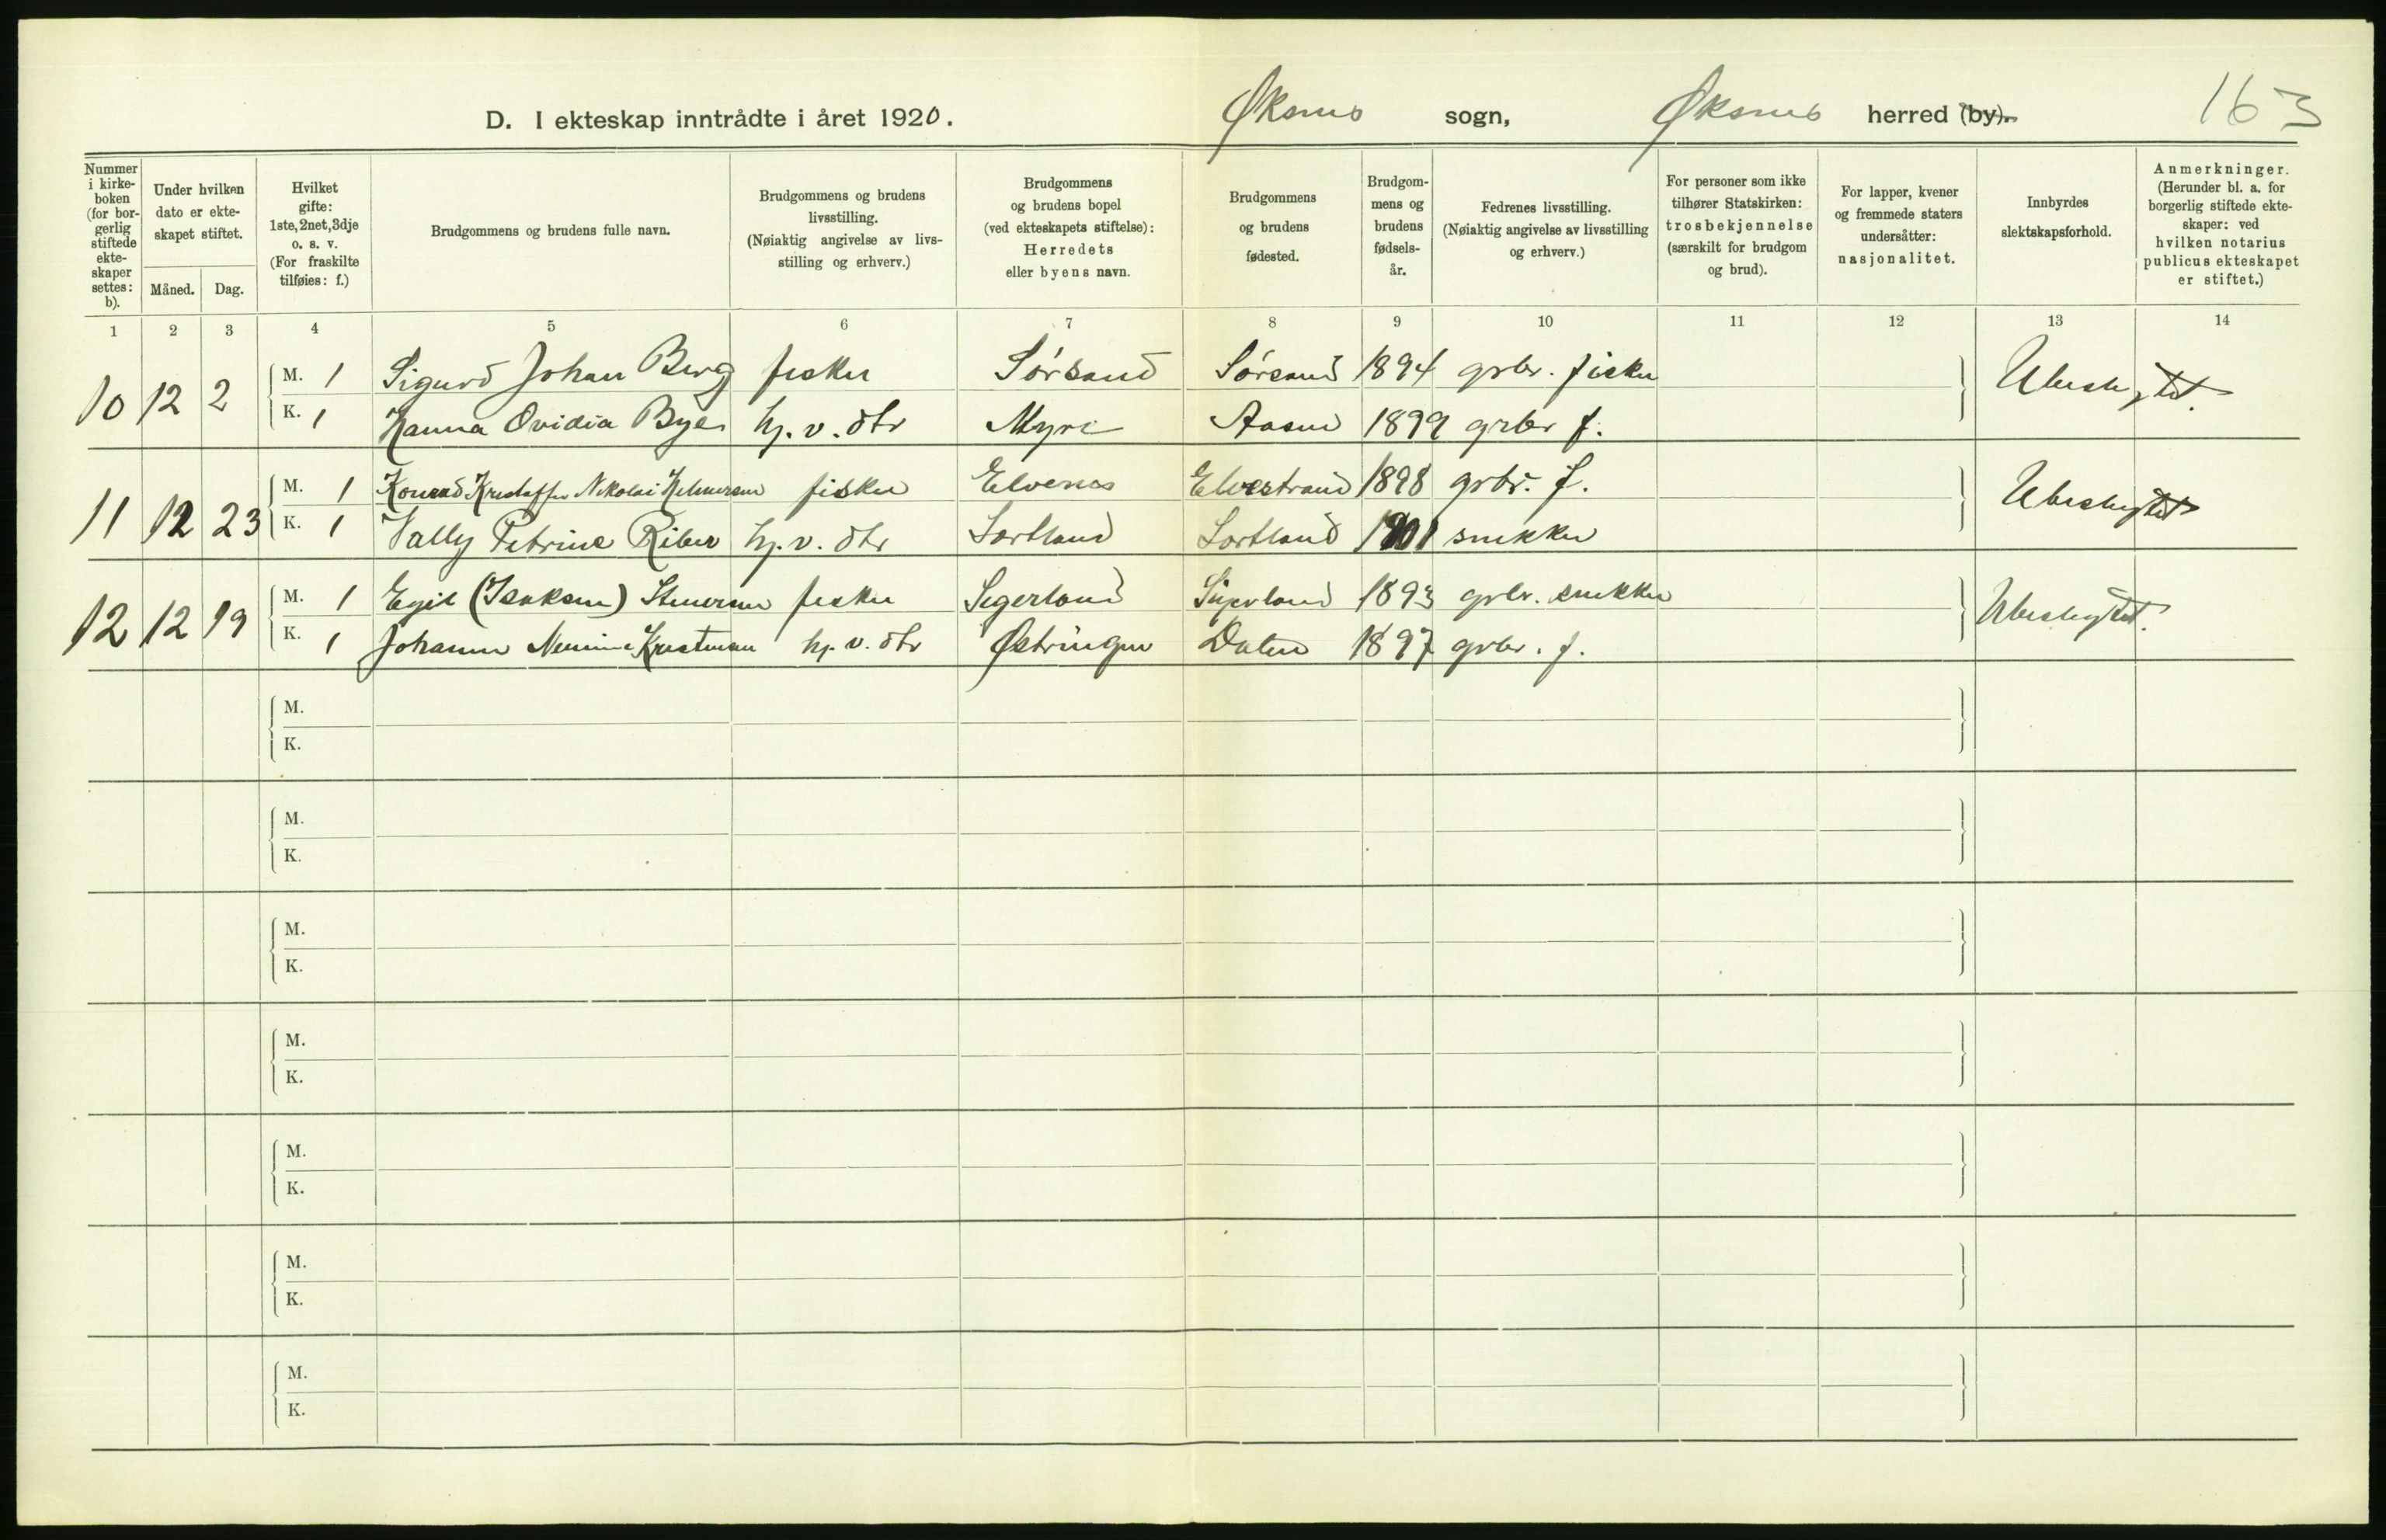 D. I ekteskap inntrådte i året 1920. Øksnes sogn, Øksnes herred (by). 163
Nummer i kirkeboken (for borgerlig stiftede ekteskaper settes: b).
Under hvilken dato er ekteskapet stiftet.
Måned. Dag.
Hvilket gifte: 1ste, 2net, 3dje o. s. v. (For fraskilte tilføies: f.)
Brudgommens og brudens fulle navn.
Brudgommens og brudens livsstilling. (Nøiaktig angivelse av livsstilling og erhverv.)
Brudgommens og brudens bopel (ved ekteskapets stiftelse): Herredets eller byens navn.
Brudgommens og brudens fødested.
Brudgommens og brudens fødselsår.
Fedrenes livsstilling. (Nøiaktig angivelse av livsstilling og erhverv.)
For personer som ikke tilhører Statskirken: trosbekjennelse (særskilt for brudgom og brud).
For lapper, kvener og fremmede staters undersåtter: nasjonalitet.
Innbyrdes slektskapsforhold.
Anmerkninger. (Herunder bl. a. for borgerlig stiftede ekteskaper: ved hvilken notarius publicus ekteskapet er stiftet.)
1 2 3 4 5 6 7 8 9 10 11 12 13 14
10 12 2 M. 1 Sigurd Johan Berg fisker Sørsand Sørsand 1894 grbr. fisker Ubeslegtet.
K. 1 Hanna Ovidia Bye hj. v. dtr Myre Aasen 1899 grbr f.
11 12 23 M. 1 Konrad Kristoffer Nikolai Helmersen fisker Elvenes Elvestrand 1898 grbr. f. Ubeslegtet
K. 1 Vally Petrine Riber hj. v. dtr Sortland Sortland 1901 snekker
12 12 19 M. 1 Egil (Isaksen) Steuersen fisker Sigerland 1893 grbr. snekker Ubeslegtet.
K. 1 Johanne Kristensen hj. v. dtr Østringen Dalen 1897 grbr. f.
M.
K.
M.
K.
M.
K.
M.
K.
M.
K.
M.
K.
M.
K.